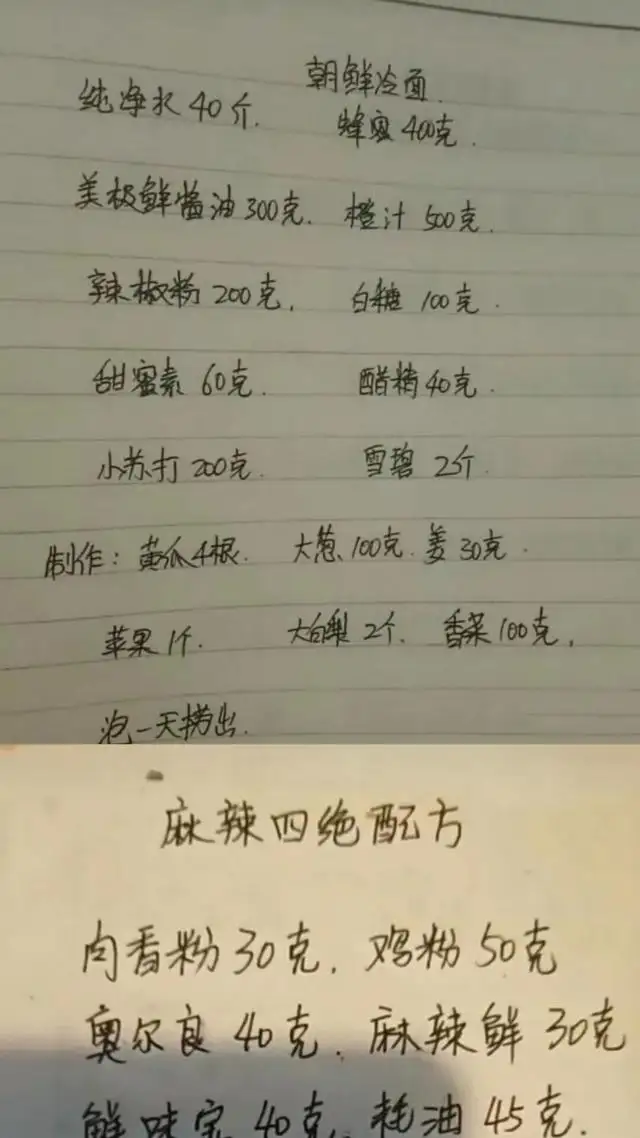 朝鲜冷面.
纯净水 40斤. 蜂蜜 400克.
美极鲜酱油 300克. 橙汁 500克.
辣椒粉 200克. 白糖 100克.
甜蜜素 60克. 醋精 40克.
小苏打 200克. 雪碧 2个.
制作: 黄瓜4根. 大葱100克. 姜30克.
苹果1个. 大白梨 2个. 香菜100克,
泡一天捞出.
麻辣四绝配方
肉香粉 30克, 鸡粉 50克
奥尔良 40克. 麻辣鲜 30克
鲜味宝 40克. 耗油 45克.